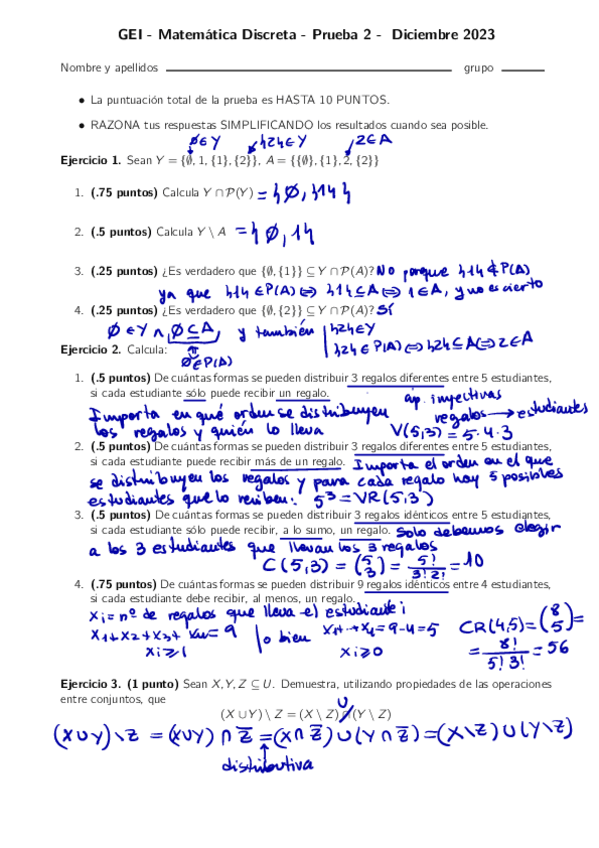 GEI - Matemática Discreta - Prueba 2 - Diciembre 2023
Nombre y apellidos grupo
• La puntuación total de la prueba es HASTA 10 PUNTOS.
• RAZONA tus respuestas SIMPLIFICANDO los resultados cuando sea posible.
∅∈Y {2}∈Y 2∈A
Ejercicio 1. Sean Y = {∅, 1, {1}, {2}}, A = {{∅}, {1}, 2, {2}}
1. (.75 puntos) Calcula Y ∩ P(Y) = {∅, {1}}
2. (.5 puntos) Calcula Y \ A = {∅, 1}
3. (.25 puntos) ¿Es verdadero que {∅, {1}} ⊆ Y ∩ P(A)? No porque {1} ∉ P(A)
ya que {1} ∈ P(A) ⇔ {1} ⊆ A ⇔ 1 ∈ A, y no es cierto
4. (.25 puntos) ¿Es verdadero que {∅, {2}} ⊆ Y ∩ P(A)? Sí
∅ ∈ Y ∧ ∅ ⊆ A, y también {2} ∈ Y
{2} ∈ P(A) ⇔ {2} ⊆ A ⇔ 2 ∈ A
Ejercicio 2. Calcula:
∅ ∈ P(A)
1. (.5 puntos) De cuántas formas se pueden distribuir 3 regalos diferentes entre 5 estudiantes,
si cada estudiante sólo puede recibir un regalo. ap. inyectivas
Importa en qué orden se distribuyen regalos → estudiantes
los regalos y quién lo lleva V(5,3) = 5·4·3
2. (.5 puntos) De cuántas formas se pueden distribuir 3 regalos diferentes entre 5 estudiantes,
si cada estudiante puede recibir más de un regalo. Importa el orden en el que
se distribuyen los regalos y para cada regalo hay 5 posibles
estudiantes que lo reciben: 5³ = VR(5,3)
3. (.5 puntos) De cuántas formas se pueden distribuir 3 regalos idénticos entre 5 estudiantes,
si cada estudiante sólo puede recibir, a lo sumo, un regalo. Solo debemos elegir
a los 3 estudiantes que llevan los 3 regalos
C(5,3) = (5 3) = 5!/3!2! = 10
4. (.75 puntos) De cuántas formas se pueden distribuir 9 regalos idénticos entre 4 estudiantes,
si cada estudiante debe recibir, al menos, un regalo.
xi = nº de regalos que lleva el estudiante i
x1+x2+x3+x4 = 9 o bien x1+···+x4 = 9-4 = 5 CR(4,5) = (8 5) =
xi ≥ 1 xi ≥ 0 = 8!/5!3! = 56
Ejercicio 3. (1 punto) Sean X, Y, Z ⊆ U. Demuestra, utilizando propiedades de las operaciones
entre conjuntos, que
∪
(X ∪ Y) \ Z = (X \ Z) ∩ (Y \ Z)
(X∪Y)\Z = (X∪Y) ∩ Z̅ = (X∩Z̅) ∪ (Y∩Z̅) = (X\Z) ∪ (Y\Z)
distributiva